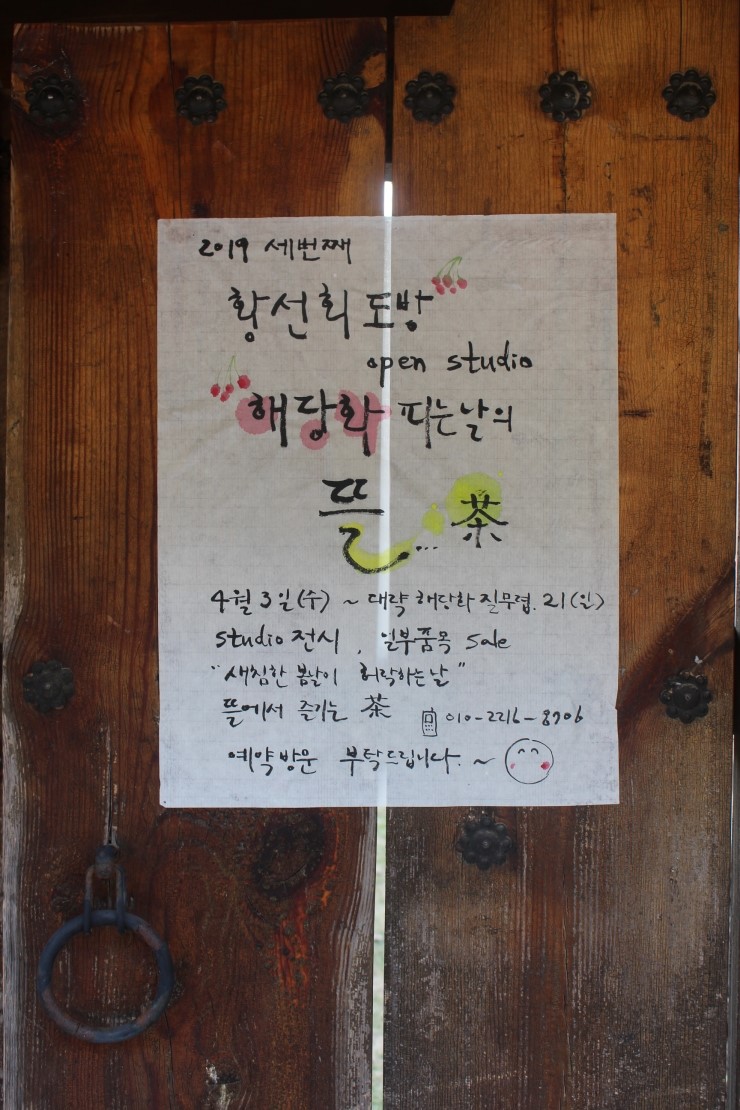 2019 세번째
황선회 도방
open studio
해당화 피는날의
뜰... 茶
4월 3일(수) ~ 대략 해당화 질무렵. 21(일)
studio 전시, 일부품목 sale
"새침한 봄날이 허락하는 날"
뜰에서 즐기는 茶 010-2216-8706
예약방문 부탁드립니다. ~